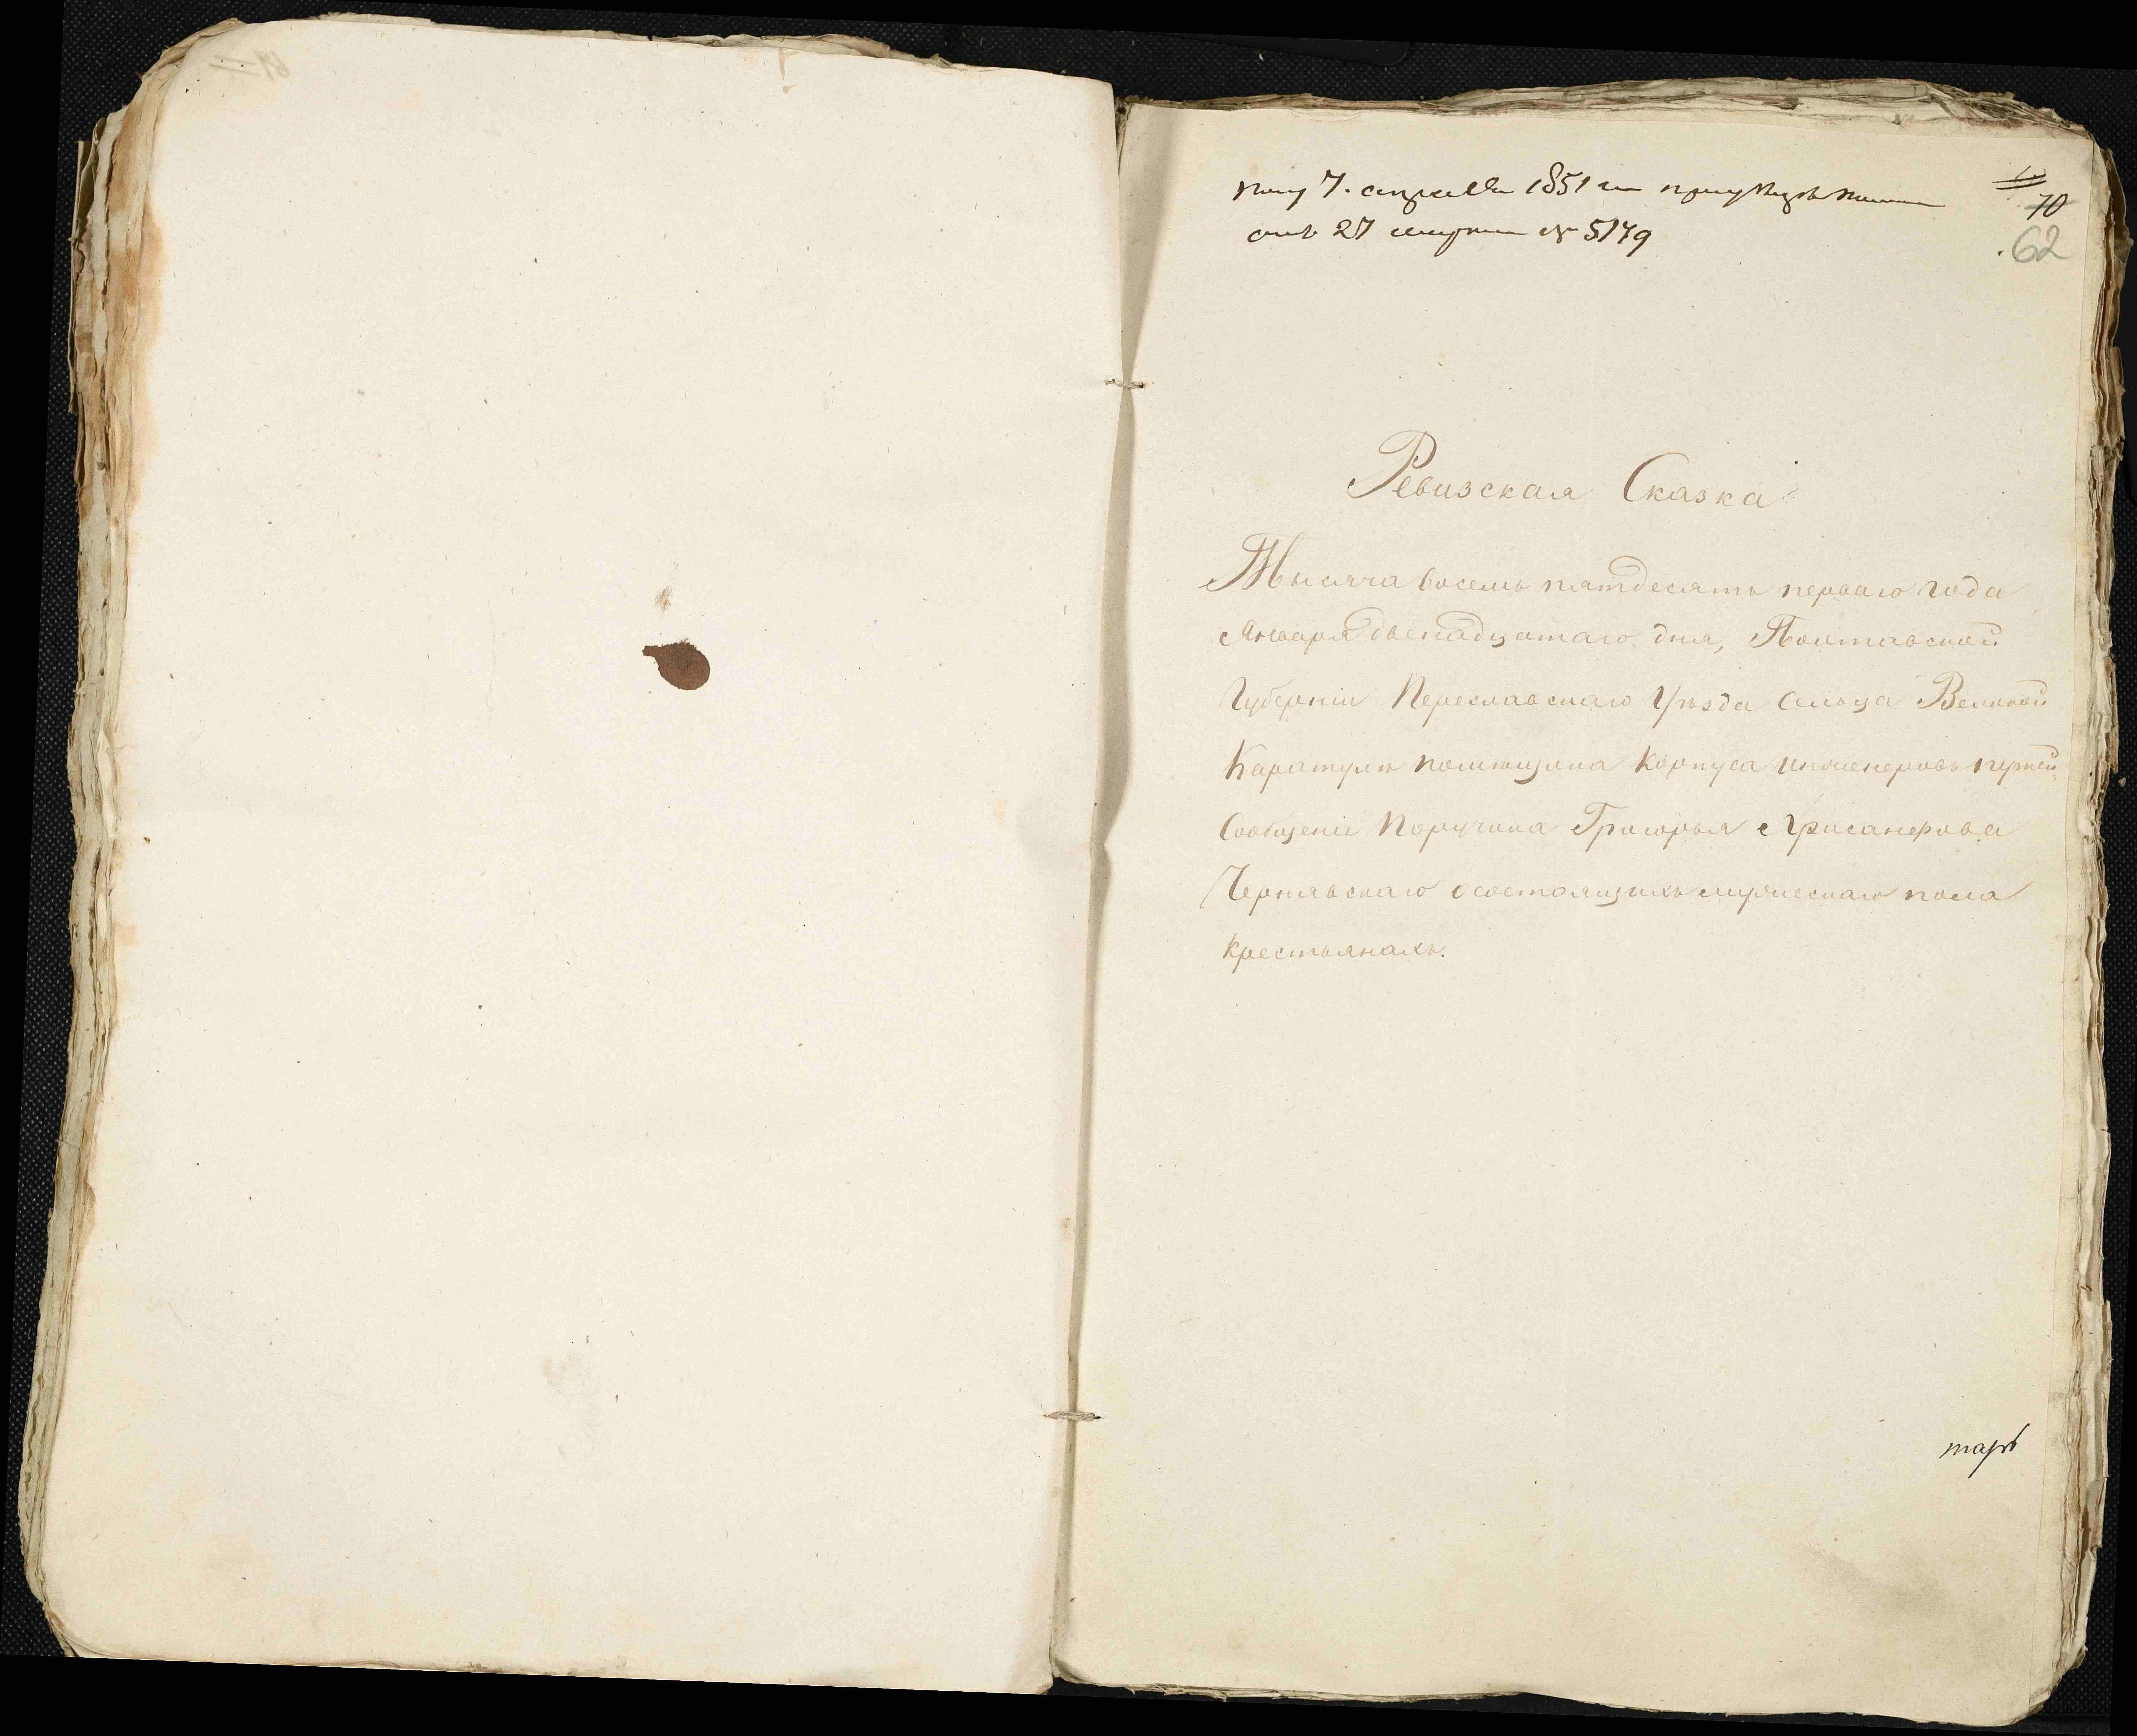 7. апреля 1851
27 № 5179
70
62
Ревизская Сказка
Тысяча восемь пятдесятъ перваго года
Января двенадцатаго дня, Полтавской
Губерніи Переславскаго Уѣзда Сельца Великой
Каратули помѣщика Корпуса инженеровъ путей
Сообщеніи Поручика Григорья Хрисанфова
Чернявскаго о состоящихъ мужескаго пола
крестьянахъ.